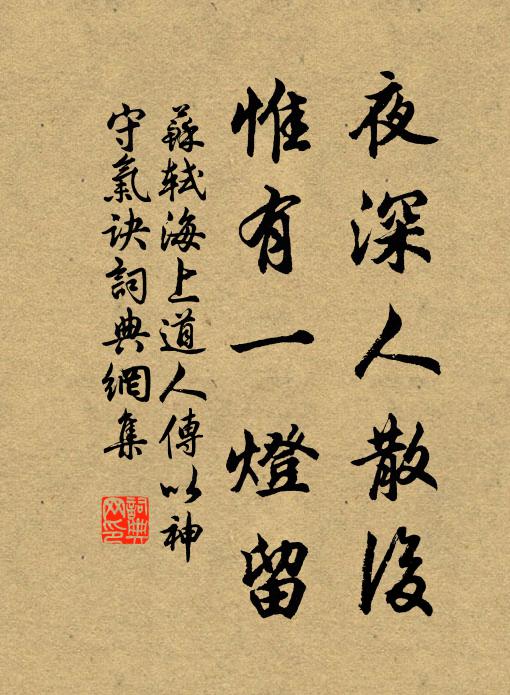 夜深人散後
惟有一燈留
蘇軾海上道人傳以神
守氣诀詞典網集
詞典
网印